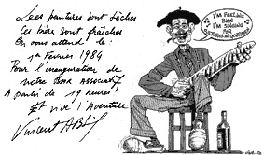 Les peintures sont sèches
les bières sont fraîches
On vous attend le :
1er Février 1984
Pour l'inauguration de
notre BAR ASSOCIATIF
A partir de 19 heures,
Et vive l'Aventure
Vincent
I'M FEELING
I'M SINGING
FOR